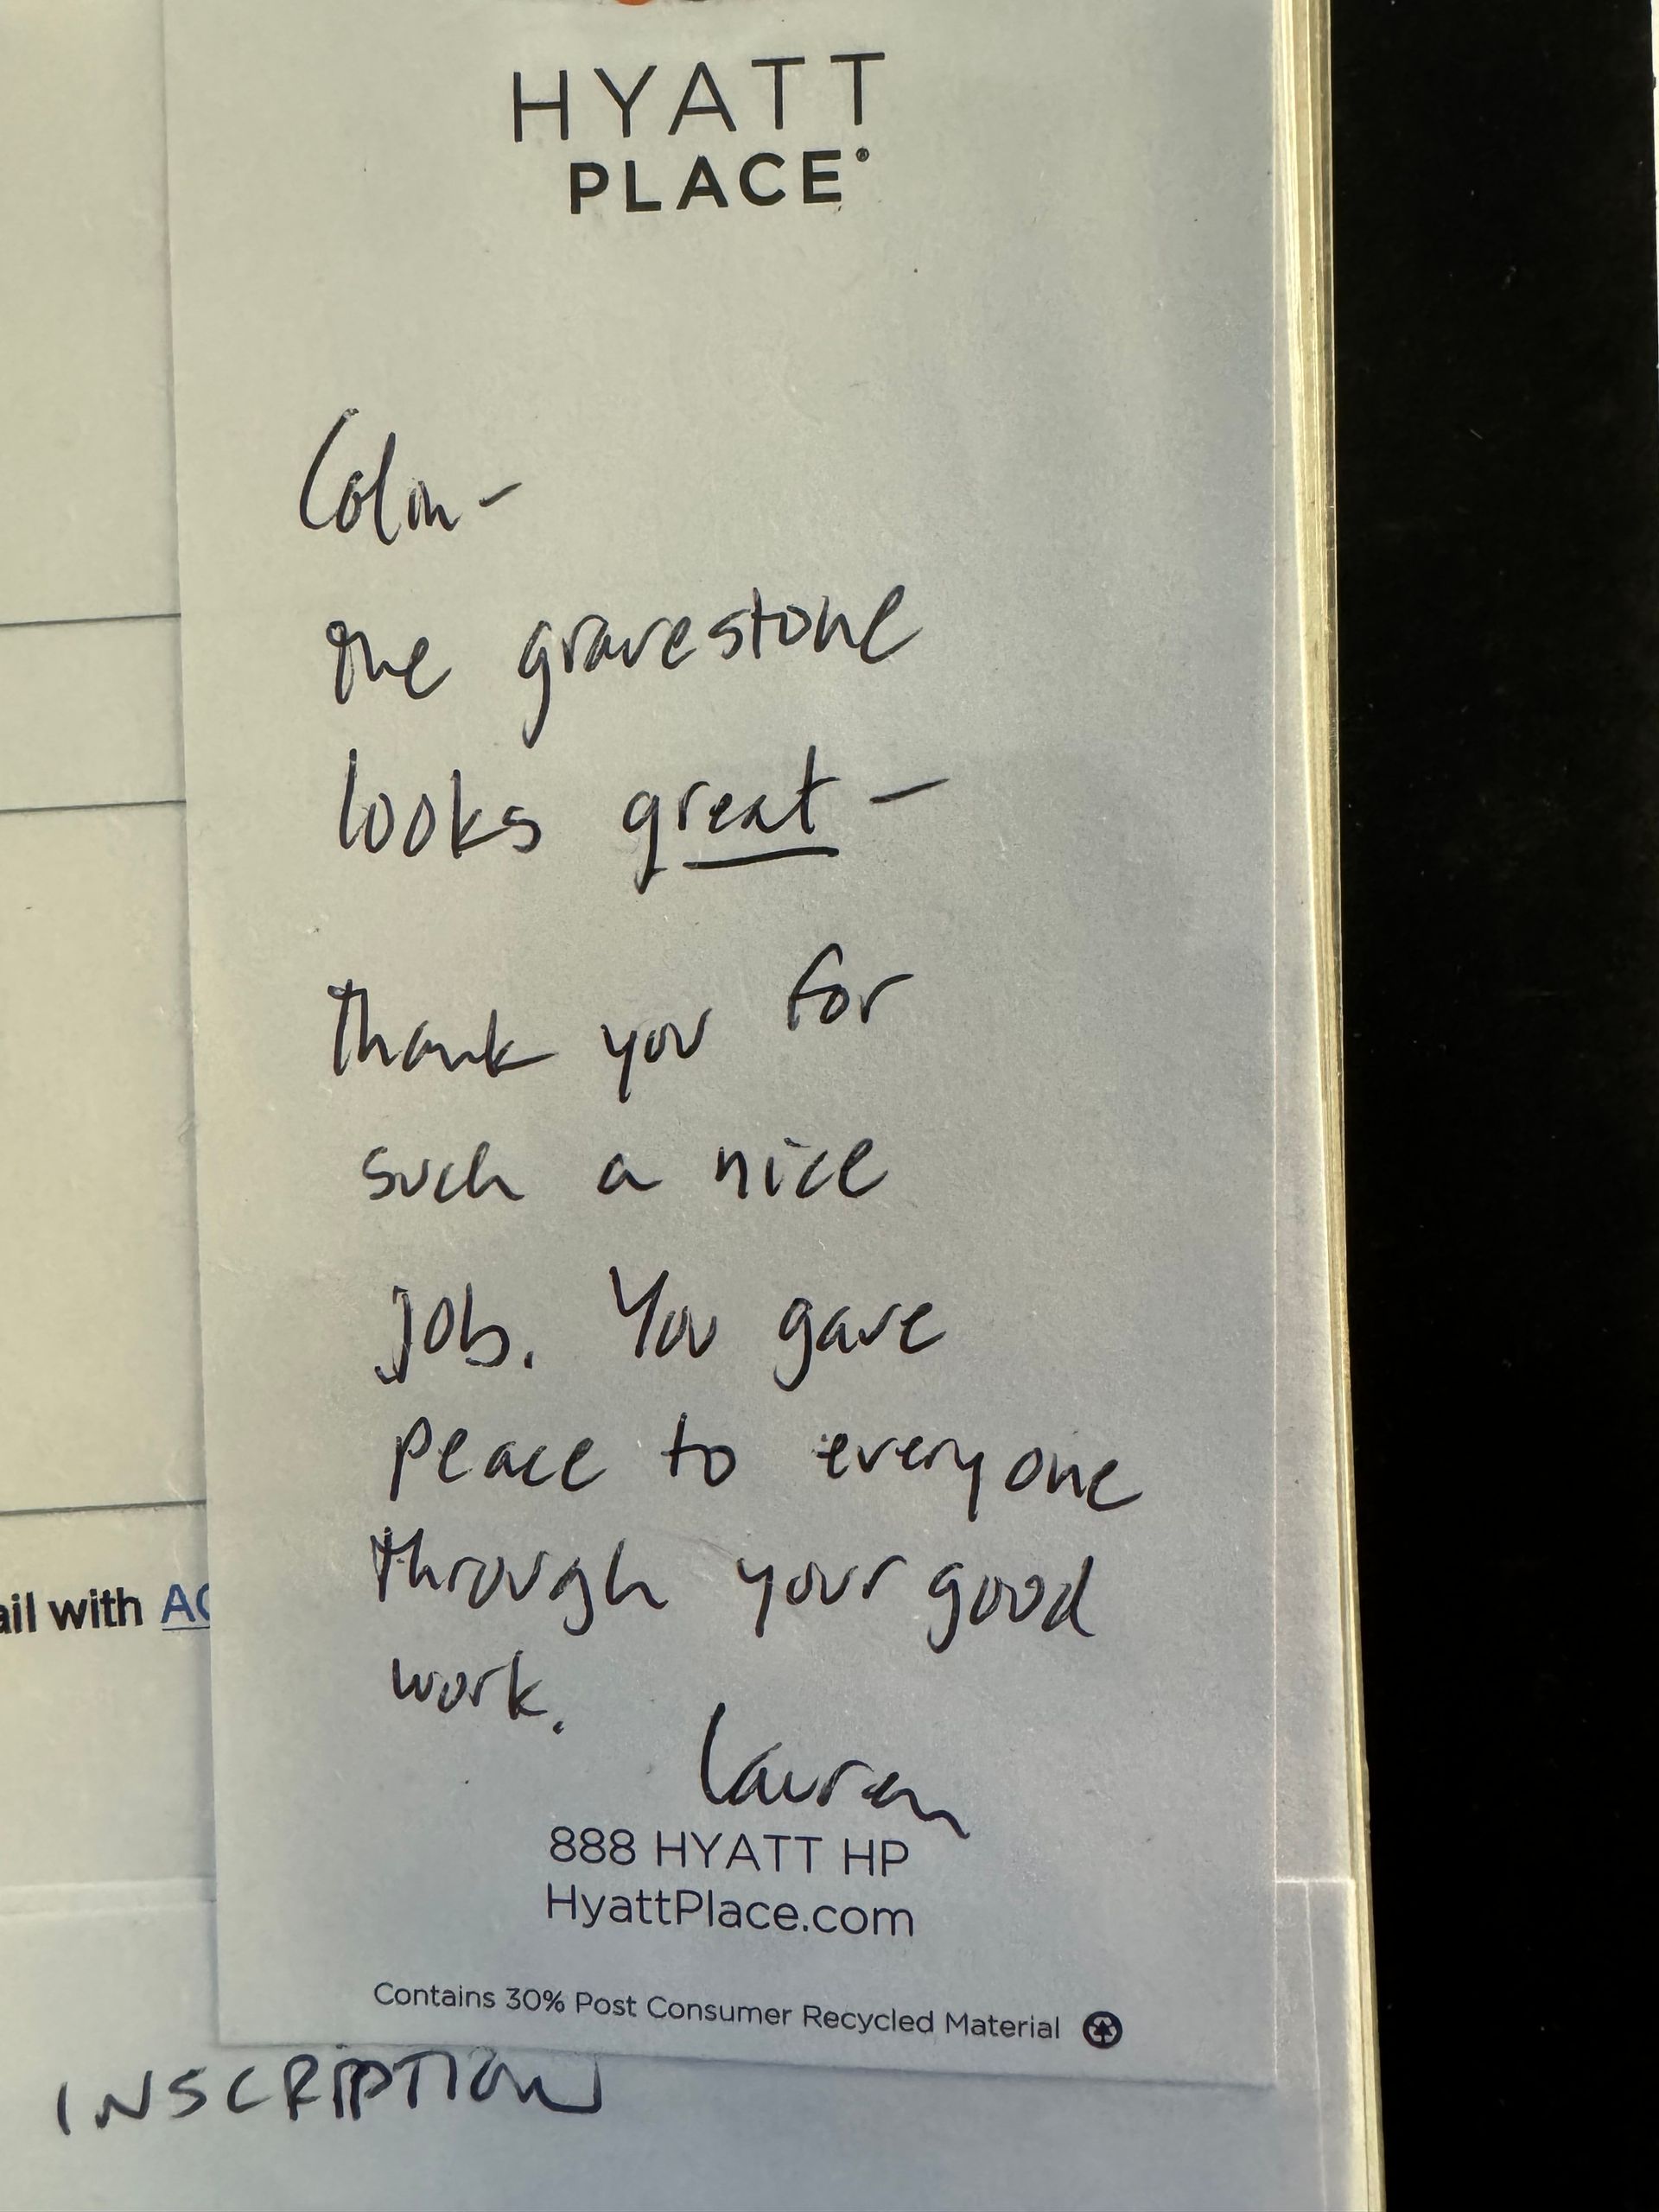 HYATT
PLACE®
Colin—
the gravestone
looks great—
thank you for
such a nice
job. You gave
peace to everyone
through your good
work.
Lauren
ail with AC
888 HYATT HP
HyattPlace.com
Contains 30% Post Consumer Recycled Material
INSCRIPTION